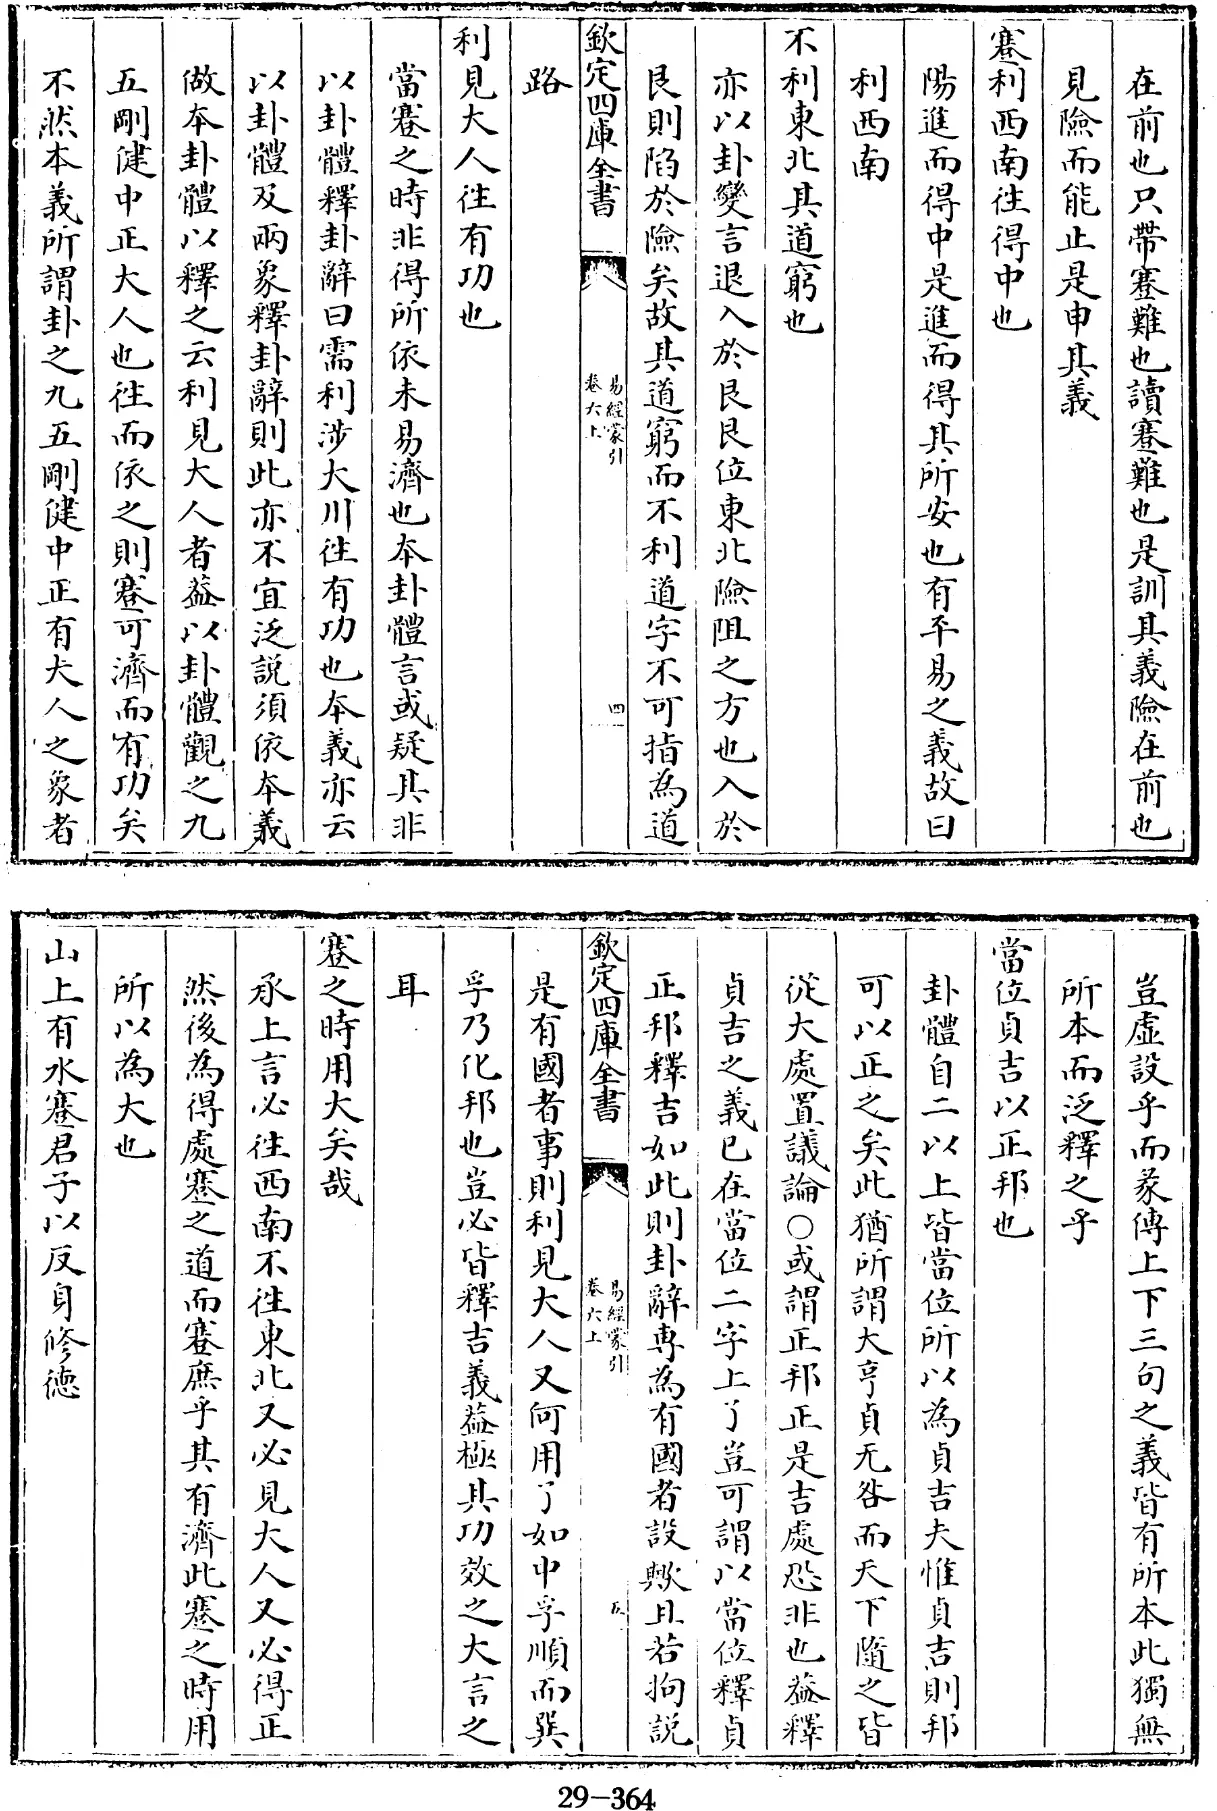 在前也只帶蹇難也讀蹇難也是訓其義險在前也
見險而能止是申其義
蹇利西南徃得中也
陽進而得中是進而得其所安也有平易之義故曰
利西南
不利東北其道窮也
亦以卦變言退入於艮艮位東北險阻之方也入於
艮則陷於險矣故其道窮而不利道字不可指為道
欽定四庫全書
易經蒙引
卷六上
四
路
利見大人徃有功也
當蹇之時非得所依未易濟也本卦體言或疑其非
以卦體釋卦辭曰需利涉大川徃有功也本義亦云
以卦體及兩象釋卦辭則此亦不宜泛説須依本義
做本卦體以釋之云利見大人者葢以卦體觀之九
五剛健中正大人也徃而依之則蹇可濟而有功矣
不然本義所謂卦之九五剛健中正有大人之象者
豈虛設乎而彖傳上下三句之義皆有所本此獨無
所本而泛釋之乎
當位貞吉以正邦也
卦體自二以上皆當位所以為貞吉夫惟貞吉則邦
可以正之矣此猶所謂大亨貞无咎而天下隨之皆
從大處置議論○或謂正邦正是吉處恐非也葢釋
貞吉之義已在當位二字上了豈可謂以當位釋貞
正邦釋吉如此則卦辭專為有國者設歟且若拘説
欽定四庫全書
易經蒙引
卷六上
五
是有國者事則利見大人又何用了如中孚順而巽
孚乃化邦也豈必皆釋吉義葢極其功效之大言之
耳
蹇之時用大矣哉
承上言必徃西南不徃東北又必見大人又必得正
然後為得處蹇之道而蹇庶乎其有濟此蹇之時用
所以為大也
山上有水蹇君子以反身修德
29-364